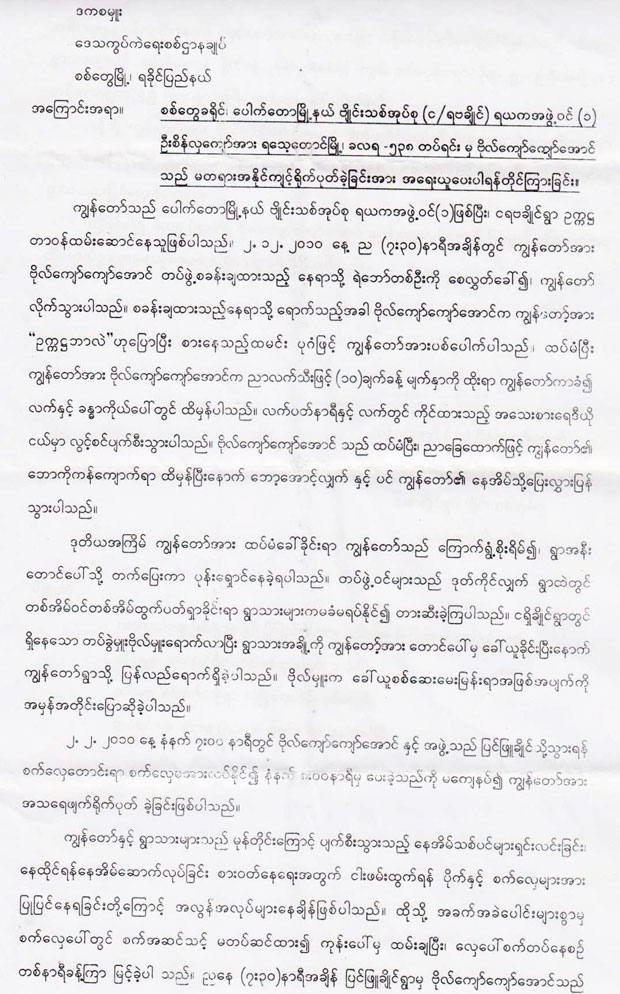 ဒကစမှူး
ဒေသကွပ်ကဲရေးစစ်ဌာနချုပ်
စစ်တွေမြို့၊ ရခိုင်ပြည်နယ်
အကြောင်းအရာ။ စစ်တွေခရိုင်၊ ပေါက်တောမြို့နယ် ဗျိုင်းသစ်အုပ်စု (င/ရဗချိုင်) ရယကအဖွဲ့ဝင် (၁)
ဦးစိန်လှကျော်အား ရသေ့တောင်မြို့၊ ခလရ -၅၃၈ တပ်ရင်း မှ ဗိုလ်ကျော်ကျော်အောင်
သည် မတရားအနိုင်ကျင့်ရိုက်ပုတ်ခဲ့ခြင်းအား အရေးယူပေးပါရန်တိုင်ကြားခြင်း။
ကျွန်တော်သည် ပေါက်တောမြို့နယ် ဗျိုင်းသစ်အုပ်စု ရယကအဖွဲ့ဝင်(၁)ဖြစ်ပြီး၊ ငရဗချိုင်ရွာ ဥက္ကဋ္ဌ
တာဝန်ထမ်းဆောင်နေသူဖြစ်ပါသည်။ ၂. ၁၂. ၂၀၁၀ နေ့ ည (၇း၃၀)နာရီအချိန်တွင် ကျွန်တော်အား
ဗိုလ်ကျော်ကျော်အောင် တပ်ဖွဲ့စခန်းချထားသည့် နေရာသို့ ရဲဘော်တစ်ဦးကို စေလွှတ်ခေါ်၍၊ ကျွန်တော်
လိုက်သွားပါသည်။ စခန်းချထားသည့်နေရာသို့ ရောက်သည့်အခါ ဗိုလ်ကျော်ကျော်အောင်က ကျွန်တော့်အား
“ဥက္ကဋ္ဌဘာလဲ”ဟုပြောပြီး စားနေသည့်ထမင်း ပုဂံဖြင့် ကျွန်တော်အားပစ်ပေါက်ပါသည်၊ ထပ်မံပြီး
ကျွန်တော်အား ဗိုလ်ကျော်ကျော်အောင်က ညာလက်သီးဖြင့် (၁၀)ချက်ခန့် မျက်နှာကို ထိုးရာ ကျွန်တော်ကာခံ၍
လက်နှင့် ခန္ဓာကိုယ်ပေါ်တွင် ထိမှန်ပါသည်။ လက်ပတ်နာရီနှင့် လက်တွင် ကိုင်ထားသည့် အသေးစားရေဒီယို
ငယ်မှာ လွင့်စင်ပျက်စီးသွားပါသည်။ ဗိုလ်ကျော်ကျော်အောင် သည် ထပ်မံပြီး၊ ညာခြေထောက်ဖြင့် ကျွန်တော်၏
ဘောကိုကန်ကျောက်ရာ ထိမှန်ပြီးနောက် ဘော့အောင့်လျှက် နှင့် ပင် ကျွန်တော်၏ နေအိမ်သို့ပြေးလွှားပြန်
သွားပါသည်။
ဒုတိယအကြိမ် ကျွန်တော်အား ထပ်မံခေါ်ခိုင်းရာ ကျွန်တော်သည် ကြောက်ရွံ့စိုးရိမ်၍၊ ရွာအနီး
တောင်ပေါ်သို့ တက်ပြေးကာ ပုန်းရှောင်နေခဲ့ရပါသည်။ တပ်ဖွဲ့ဝင်များသည် ဒုတ်ကိုင်လျှက် ရွာထဲတွင်
တစ်အိမ်ဝင်တစ်အိမ်ထွက်ပတ်ရှာခိုင်းရာ ရွာသားများကမခံမရပ်နိုင်၍ တားဆီးခဲ့ကြပါသည်။ ငရှိချိုင်ရွာတွင်
ရှိနေသော တပ်ခွဲမှူးဗိုလ်မှူးရောက်လာပြီး ရွာသားအချို့ကို ကျွန်တော့်အား တောင်ပေါ်မှ ခေါ်ယူခိုင်းပြီးနောက်
ကျွန်တော်ရွာသို့ ပြန်လည်ရောက်ရှိခဲ့ပါသည်။ ဗိုလ်မှူးက ခေါ်ယူစစ်ဆေးမေးမြန်းရာအဖြစ်အပျက်ကို
အမှန်အတိုင်းပြောဆိုခဲ့ပါသည်။
၂. ၂. ၂၀၁၀ နေ့ နံနက် ၇း၀၀ နာရီတွင် ဗိုလ်ကျော်ကျော်အောင် နှင့် အဖွဲ့သည် ပြင်ဖြူချိုင်သို့သွားရန်
စက်လှေတောင်းရာ နံနက် နာရီမှ ပေးခဲ့သည်ကို မကျေနပ်၍ ကျွန်တော်အား
အသရေဖျက်ရိုက်ပုတ် ခဲ့ခြင်းဖြစ်ပါသည်။
ကျွန်တော်နှင့် ရွာသားများသည် မုန်တိုင်းကြောင့် ပျက်စီးသွားသည့် နေအိမ်သစ်ပင်များရှင်းလင်းခြင်း၊
နေထိုင်ရန်နေအိမ်ဆောက်လုပ်ခြင်း စားဝတ်နေရေးအတွက် ငါးဖမ်းထွက်ရန် ပိုက်နှင့် စက်လှေများအား
ပြုပြင်နေရခြင်းတို့ကြောင့် အလွန်အလုပ်များနေချိန်ဖြစ်ပါသည်။ ထိုသို့ အခက်အခဲပေါင်းများစွာမှ
စက်လှေပေါ်တွင် စက်အဆင်သင့် မတပ်ဆင်ထား၍ ကုန်းပေါ်မှ ထမ်းချပြီး၊ လှေပေါ်စက်တပ်နေစဉ်
တစ်နာရီခန့်ကြာ မြင့်ခဲ့ပါ သည်။ ညနေ (၇း၃၀)နာရီအချိန် ပြင်ဖြူချိုင်ရွာမှ ဗိုလ်ကျော်ကျော်အောင်သည်